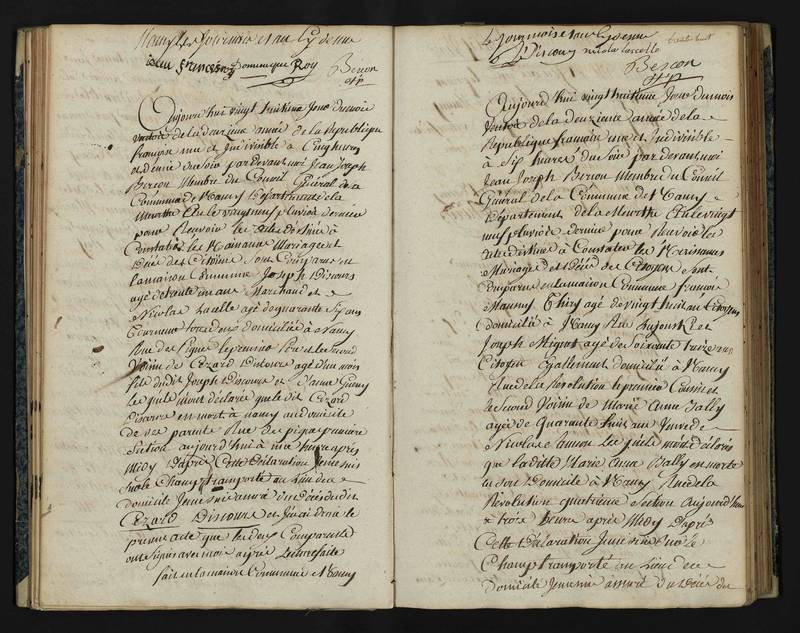 Nancy les jour mois et an cy devant
françois Dominique Roy Bercon
Aujourd'hui vingt huitieme Jour du mois
ventose de la deuzieme année de la Republique
françoise une et Indivisible à Cinq heures
et demie du soir par devant moi Jean Joseph
Bercon Membre du Conseil Général de la
Commune de Nancy Departement de la
Meurthe Elu le vingt neuf pluviose dernier
pour Recevoir les actes destinés à
Constater les Naissances Mariages et
Décès des Citoiens Sont Comparus en
la maison Commune Joseph Discours
agé de trente un ans Marchand et
Nicolas Lasalle agé de quarante six ans
tous deux domiciliés à Nancy
Rue des le premier Pere et le second
Voisin de Cézard Discours agé d'un mois
fils dudit Joseph Discours et d'anne
Lesquels m'ont déclaré que le dit Cézard
Discours est mort à nancy au domicile
de ses parents Rue premiere
Section aujourd'hui à une heure après
Midy D'après Cette Déclaration Je me suis
sur le Champ transporté au Lieu de ce
domicile Je me suis assuré du Décès dudit
Cézard Discours et J'en ai dressé le
present acte que les deux Comparants
ont signés avec moi après Lecture faite
fait en la maison Commune à Nancy
le Jour mois et an cy devant
J Discours nicolas Lasalle trente huit
Bercon
Aujourd'hui vingt huitieme Jour du mois
Ventose de la deuzieme année de la
République francoise une et Indivisible
à Six heures du soir par devant moi
Jean Joseph Bercon Membre du Conseil
Général de la Commune de Nancy
Département de la Meurthe Elu le vingt
neuf pluviose dernier pour Recevoir les
actes destinés à Constater les Naissances
Mariages et Décès des Citoyens Sont
Comparus en la maison Commune francois
Thiry agé de vingt huit ans Citoyen
domicilié à Nancy Rue et
Joseph Mignot agé de soixante treize ans
Citoyen Egallement domicilié à Nancy
Rue de la Révolution le premier Cousin et
le second Voisin de Marie Anne Bally
agée de Quarante huit ans
Nicolas Lesquels m'ont déclarés
que laditte Marie Anne Bally est morte
en son Domicile à Nancy Rue de la
Révolution quatrieme Section aujourd'hui
à trois heures après Midy D'après
Cette Déclaration Je me suis sur le
Champ transporté au Lieu de ce
domicile Je me suis assuré du Décès de